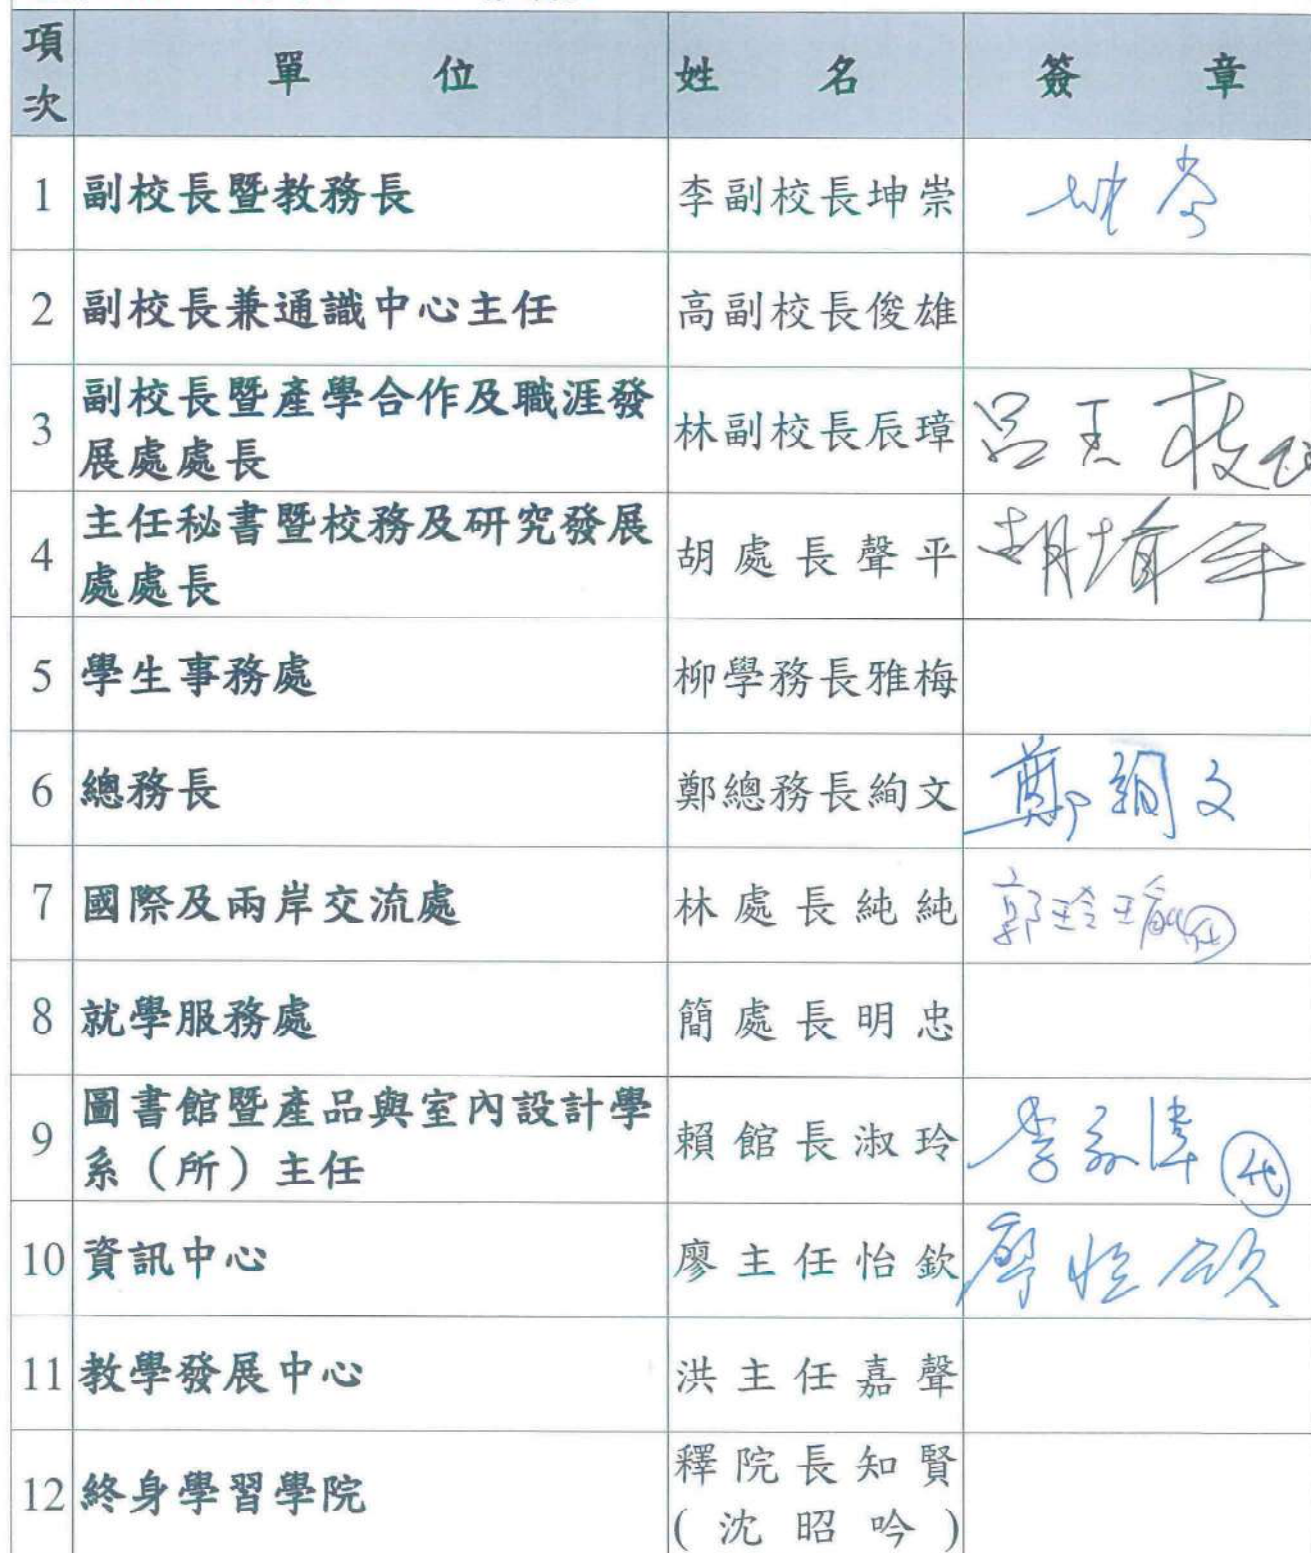 項次 單位 姓名 簽章
1 副校長暨教務長 李副校長坤崇 坤崇
2 副校長兼通識中心主任 高副校長俊雄
3 副校長暨產學合作及職涯發 林副校長辰璋
展處處長
4 主任秘書暨校務及研究發展 胡處長聲平
處處長
5 學生事務處 柳學務長雅梅
6 總務長 鄭總務長絢文 鄭絢文
7 國際及兩岸交流處 林處長純純 郭玲瑜代
8 就學服務處 簡處長明忠
9 圖書館暨產品與室內設計學 賴館長淑玲 代
系（所）主任
10 資訊中心 廖主任怡欽 廖怡欽
11 教學發展中心 洪主任嘉聲
12 終身學習學院 釋院長知賢
(沈昭吟)